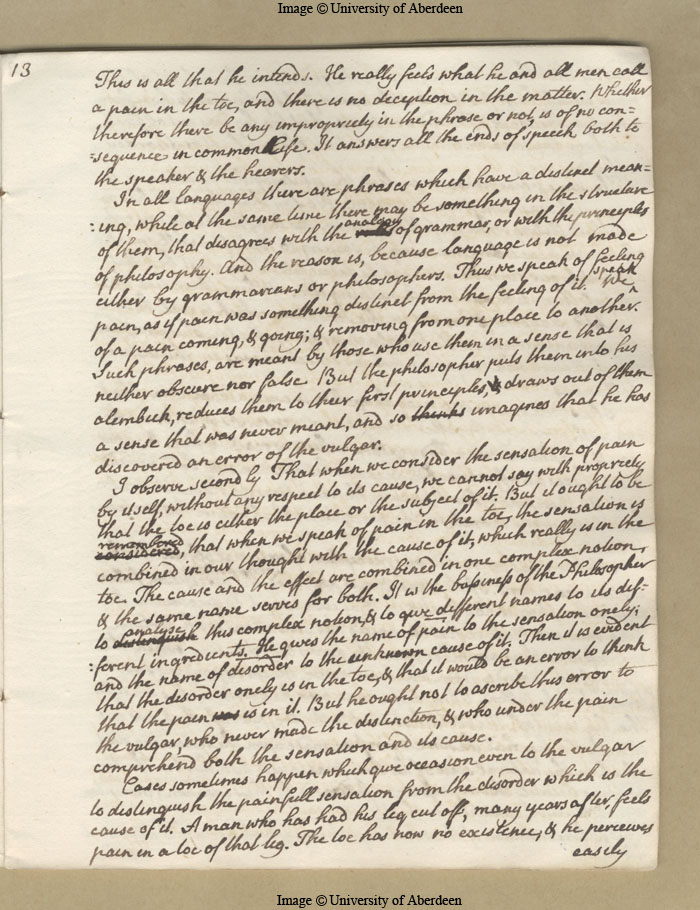 Image © University of Aberdeen
13
This is all that he intends. He really feels what he and all men call
a pain in the toe, and there is no deception in the matter. Whether
therefore there be any impropriety in the phrase or not, is of no con=
=sequence in common Life. It answers all the ends of speech both to
the speaker & the hearers.
In all languages there are phrases which have a distinct mean=
=ing, while at the same time there may be something in the structure
analogy
of them, that disagrees with the of grammar, or with the principles
of philosophy. And the reason is, because language is not made
either by grammarians or philosophers. Thus we speak of feeling
speak
pain, as if pain was something distinct from the feeling of it. We ^
of a pain coming, & going; & removing from one place to another.
Such phrases, are meant by those who use them in a sense that is
neither obscure nor false. But the philosopher puts them into his
alembick, reduces them to their first principles, & draws out of them
a sense that was never meant, and so thinks imagines that he has
discovered an error of the vulgar.
I observe secondly That when we consider the sensation of pain
by itself, without any respect to its cause, we cannot say with propriety
that the toe is either the place or the subject of it. But it ought to be
remembered
considered, that when we speak of pain in the toe, the sensation is
combined in our thought with the cause of it, which really is in the
toe. The cause and the effect are combined in one complex notion,
& the same name serves for both. It is the bussiness of the Philosopher
analyse
to distinguish this complex notion, & to give different names to its dif=
=ferent ingredients. He gives the name of pain to the sensation onely;
and the name of disorder to the unknown cause of it. Then it is evident
that the disorder onely is in the toe, & that it would be an error to think
that the pain was is in it. But he ought not to ascribe this error to
the vulgar, who never made the distinction, & who under the pain
comprehend both the sensation and its cause.
Cases sometimes happen which give occasion even to the vulgar
to distinguish the painfull sensation from the disorder which is the
cause of it. A man who has had his leg cut off, many years after, feels
pain in a toe of that leg. The toe has now no existence, & he perceives
easily
Image © University of Aberdeen